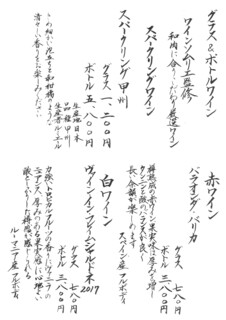 グラス&ボトルワイン
ワインソムリエ監修
和肉に合うこだわり厳選ワイン
スパークリングワイン
スパークリング甲州
グラス 一、二〇〇円
ボトル 五、八〇〇円
生産地 日本
品種 甲州
生産者 ルミエール
きめ細かい泡立ちと和柑橘のような
清々しい香りをお楽しみください
赤ワイン
バラオンダ バリカ
グラス 七八〇円
ボトル 三、八〇〇円
樽熟成の赤ワイン 果実味に厚みが増し
タンニンと酸のバランスが良く
長く余韻が楽しめます
スペイン産 フルボディ
白ワイン
2017
グラス 七八〇円
ボトル 三、八〇〇円
力強いトロピカルフルーツの香りにヴァニラの
ニュアンス 厚みのある果実感に心地よい
酸としっかりした樽感が感じられる
ルーマニア産 フルボディ